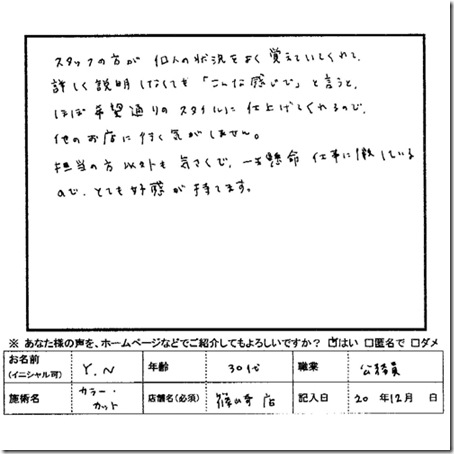 スタッフの方が 個人の状況をよく覚えていてくれて、
詳しく説明しなくても「こんな感じで」と言うと、
ほぼ希望通りのスタイルに仕上げてくれるので、
他のお店に行く気がしません。
担当の方以外も気さくで、一生懸命 仕事に徹している
ので、とても好感が持てます。
※ あなた様の声を、ホームページなどでご紹介してもよろしいですか？ ☑はい □匿名で □ダメ
お名前 (イニシャル可) Y.N 年齢 30代 職業 公務員
施術名 カラー・カット 店舗名(必須) 篠ノ井店 記入日 20年12月 日